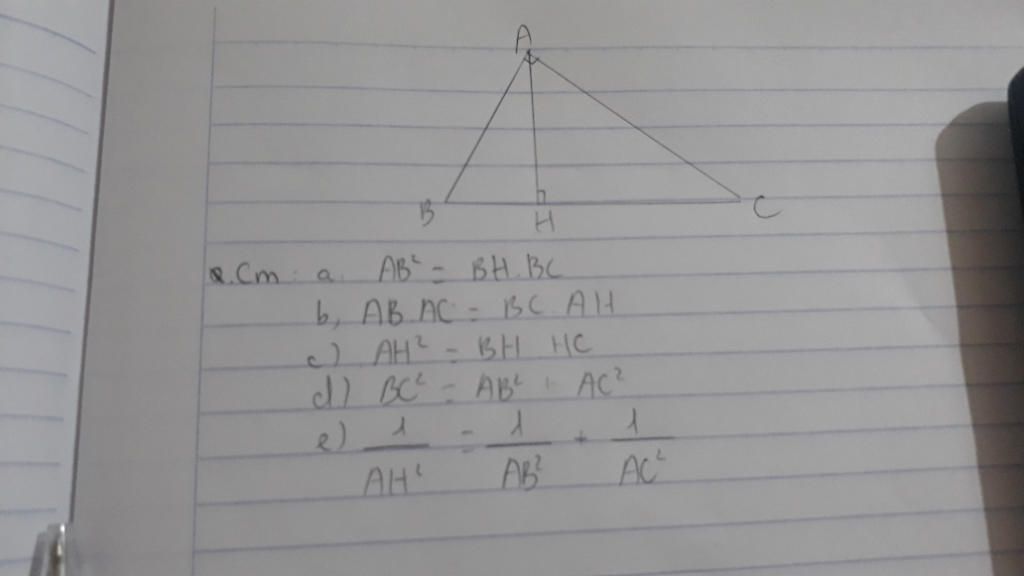 A
B
H
C
Cm: a. AB² = BH.BC
b, AB.AC = BC.AH
c) AH² = BH HC
d) BC² = AB² + AC²
e) 1/AH² = 1/AB² + 1/AC²